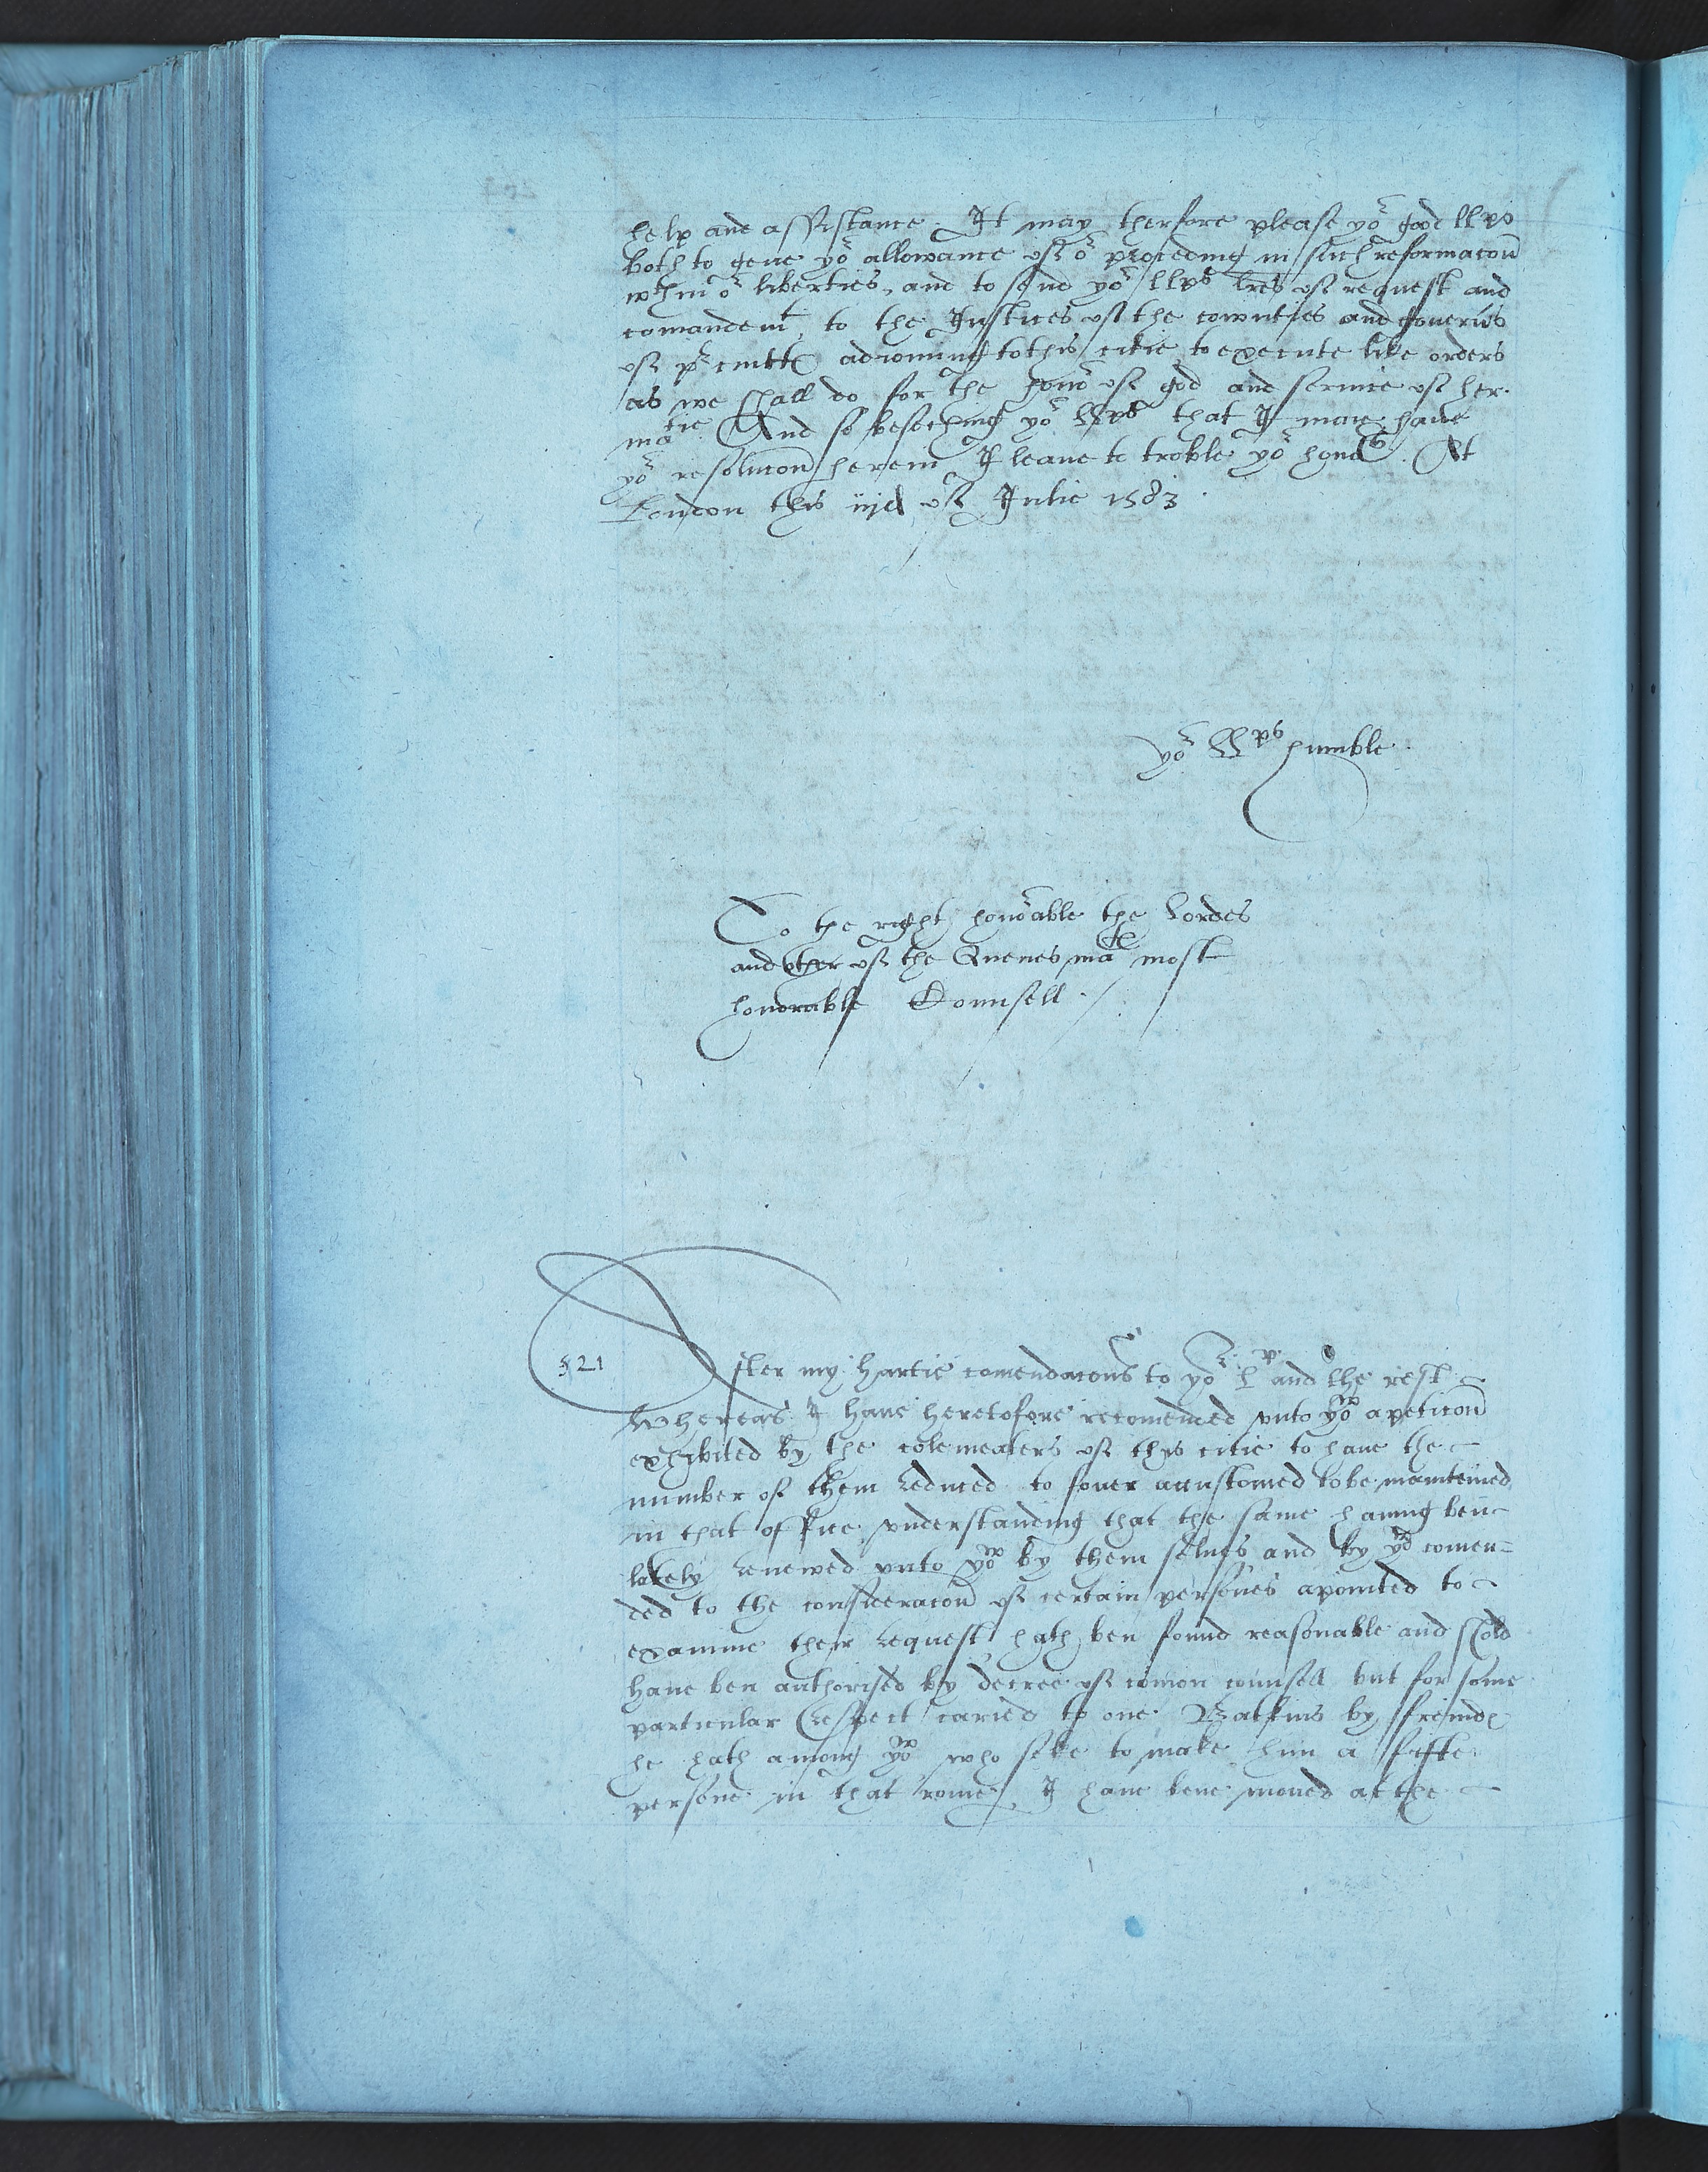 help and assistance. It may therfore please yor good llps
both to geue yor allowance of or proceding in such reformacon
wthin or liberties, and to send yor llps lres of request and
comandemt, to the Justices of the counties and gouernrs
of adioining to this citie to execute like orders
as we shall do for the honor of god and seruice of her
matie. And so beseching yor llps that I maie haue
yor resolucon herein I leaue to troble yor honors. At
London this iijd of Julie 1583.
yor LLps humble.
To the right honorable the Lordes
and other of the Quenes maties most
honorable Counsell./.
521
After my hartie comendacons to yor L. and the rest
Whereas I haue heretofore recomended vnto yow a peticon
exhibited by the colemeaters of this citie to haue the
number of them reduced to fouer accustomed to be mainteined
in that office vnderstanding that the same hauing ben
lately renewed vnto yow by them selues and by yow comen=
ded to the consideracon of certain persones apointed to
examine their request, hath ben found reasonable and shold
haue ben authorised by decree of comon counsell but for some
particular respect caried to one Watkins by freindes
he hath among yow who seke to make him a fifte
persone in that rome, I haue bene moued at the